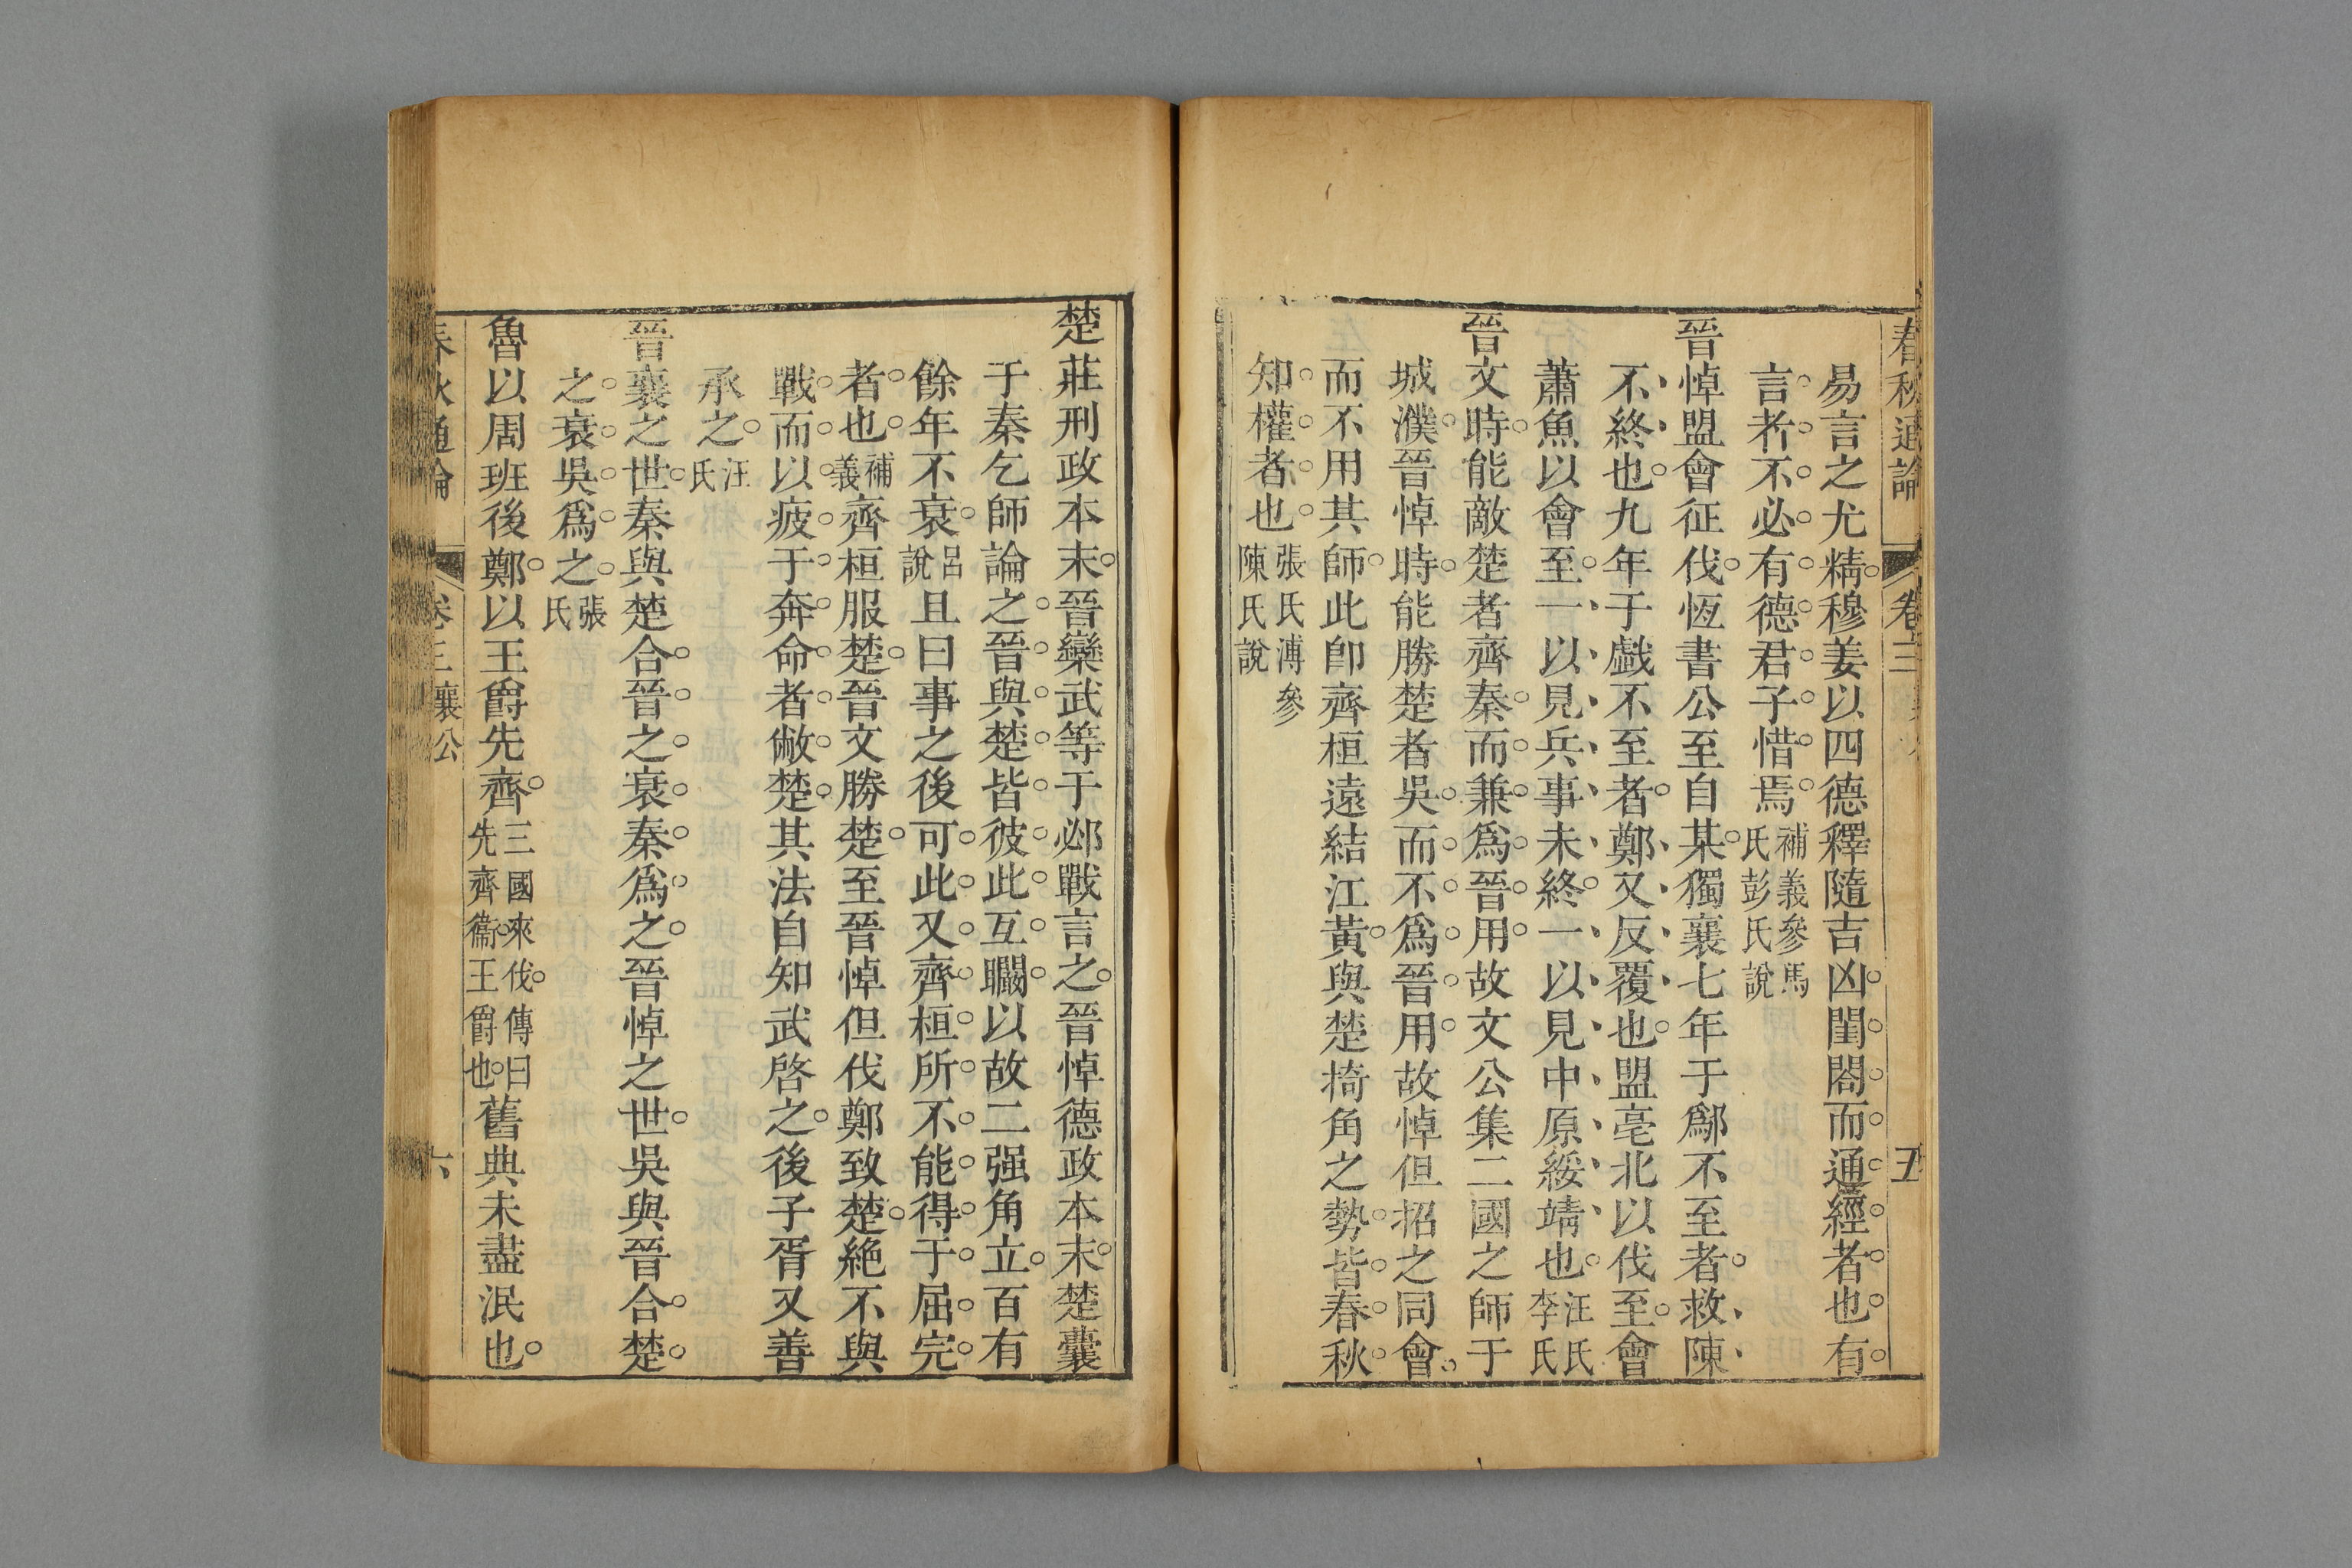 春秋通論 卷三 五
易言之尤精穆姜以四德釋隨吉凶閨閤而通經者也有
言者不必有德君子惜焉補義參馬氏彭氏說
晉悼盟會征伐恆書公至自某獨襄七年于鄬不至者救陳
不終也九年于戲不至者鄭又反覆也盟亳北以伐至會
蕭魚以會至一以見兵事未終一以見中原綏靖也汪氏李氏
晉文時能敵楚者齊秦而兼爲晉用故文公集二國之師于
城濮晉悼時能勝楚者吳而不爲晉用故悼但招之同會
而不用其師此卽齊桓遠結江黃與楚掎角之勢皆春秋
知權者也張氏溥參陳氏說
楚莊刑政本末晉欒武等于邲戰言之晉悼德政本末楚囊
于秦乞師論之晉與楚皆彼此互矙以故二强角立百有
餘年不衰呂說且曰事之後可此又齊桓所不能得于屈完
者也補義齊桓服楚晉文勝楚至晉悼但伐鄭致楚絶不與
戰而以疲于奔命者敝楚其法自知武啓之後子胥又善
承之汪氏
晉襄之世秦與楚合晉之衰秦爲之晉悼之世吳與晉合楚
之衰吳爲之張氏
魯以周班後鄭以王爵先齊三國來伐傳曰先齊衞王爵也舊典未盡泯也
春秋通論 卷三 襄公 六